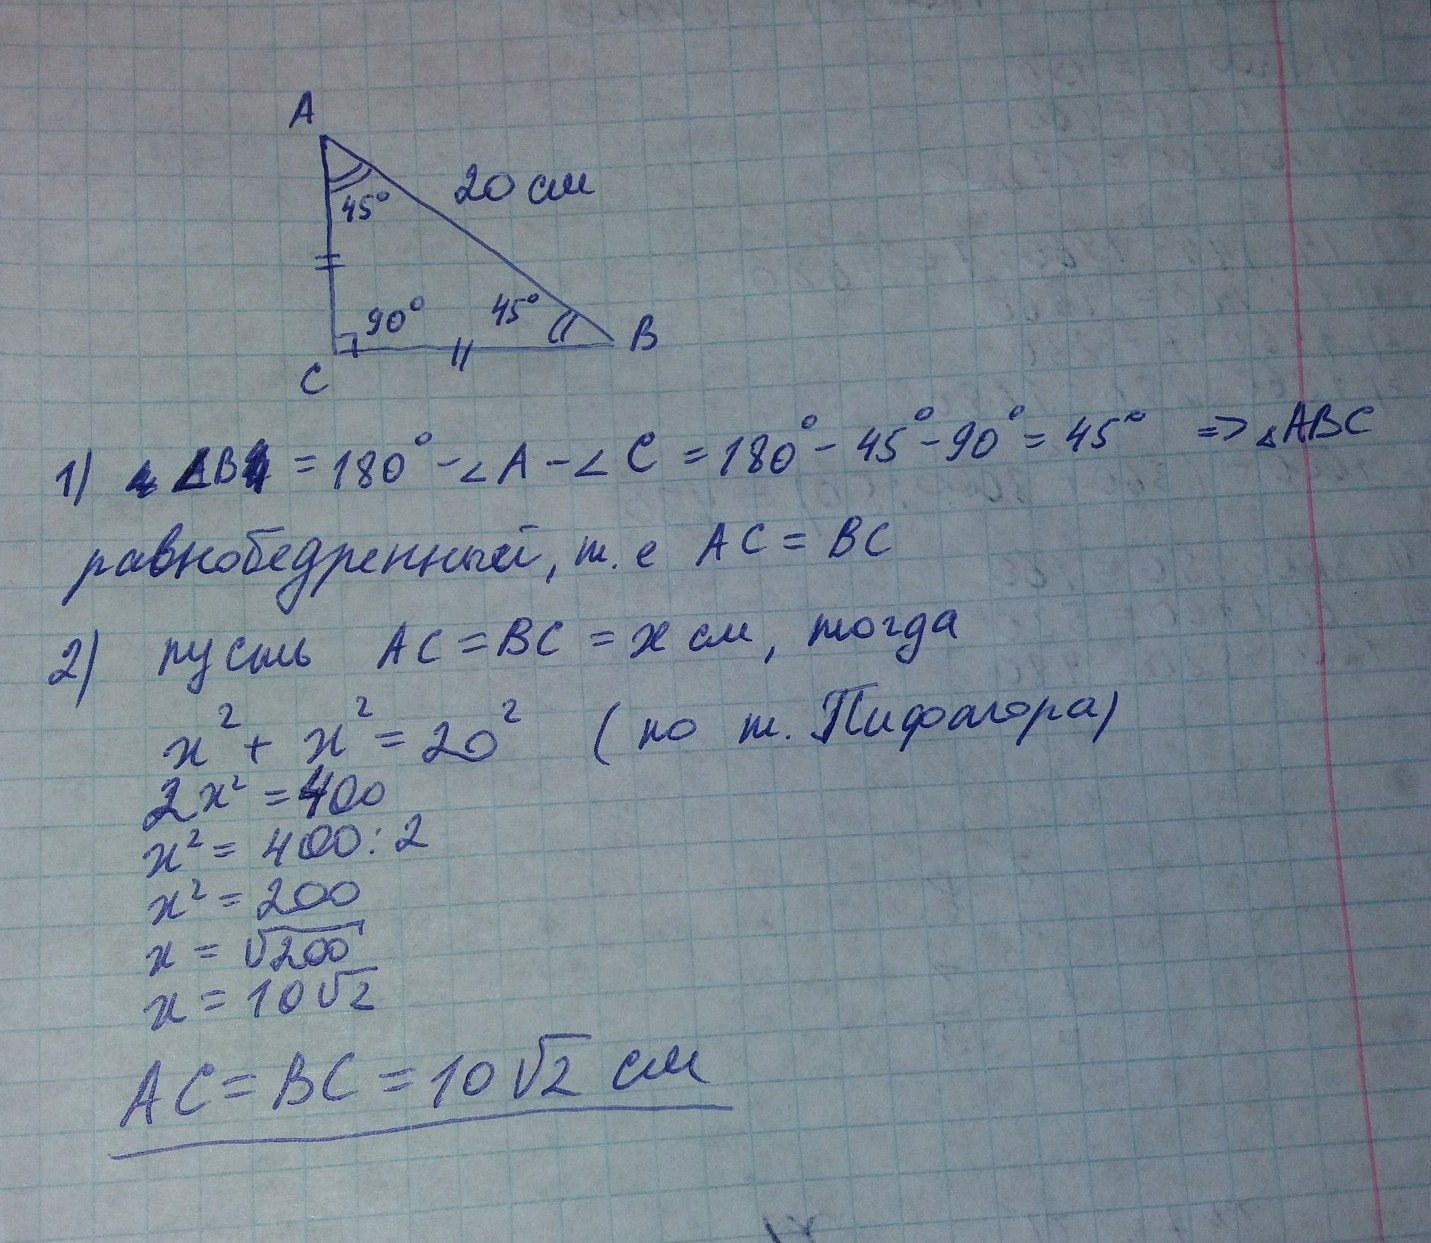 A
20 см
45°
90° 45°
B
C
1) ∠B = 180° - ∠A - ∠C = 180° - 45° - 90° = 45° => △ABC
равнобедренный, т.е AC = BC
2) пусть AC = BC = x см, тогда
x² + x² = 20² (по т. Пифагора)
2x² = 400
x² = 400 : 2
x² = 200
x = √200
x = 10√2
AC = BC = 10√2 см